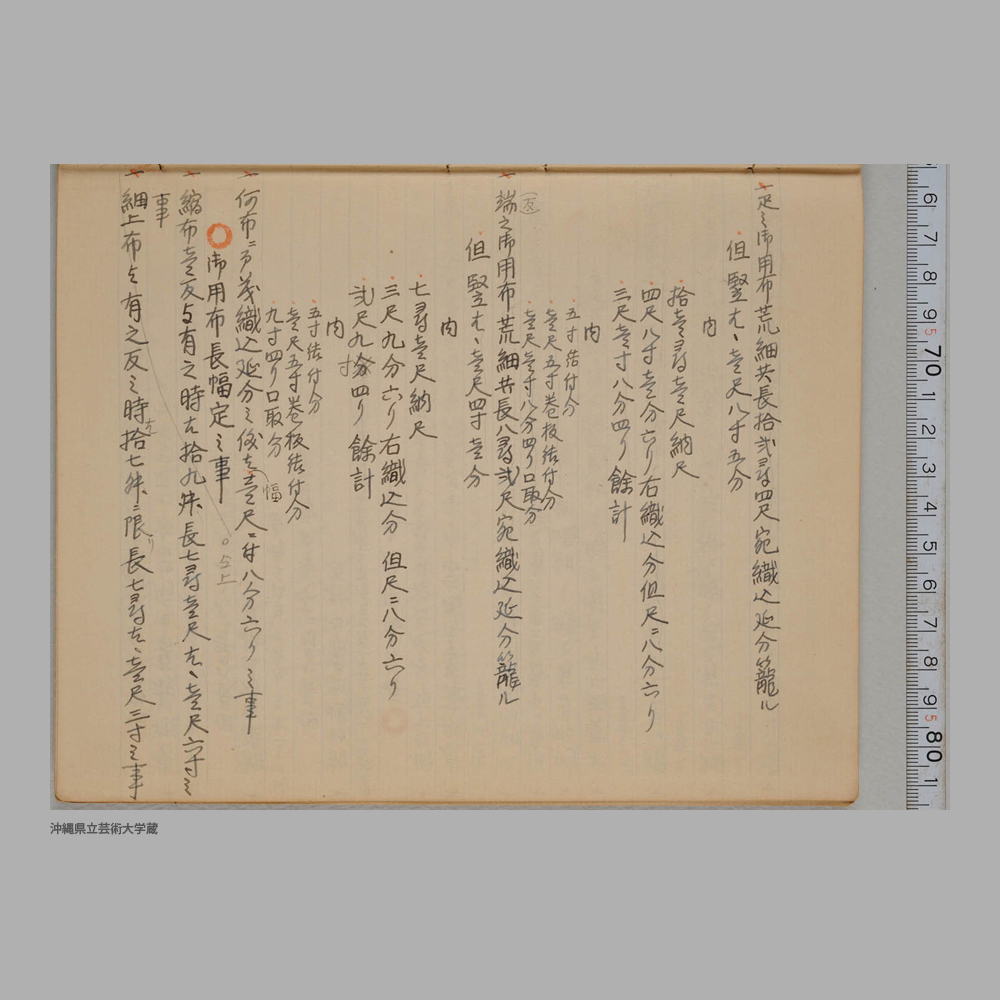 一 疋之御用布荒細共長拾弐尋四尺宛織込延分籠ル
但竪ヒヽ壱尺八寸五分
内
拾壱尋壱尺納尺
四尺八寸壱分六リ右織込分但尺ニ八分六リ
三尺壱寸八分四リ餘計
内
五寸結付分
壱尺五寸巻板結付分
壱尺壱寸八分四リ口取分
一 端之御用布荒細共長八尋弐尺宛織込延分籠ル
(反)
但竪ヒヽ壱尺四寸壱分
内
七尋壱尺納尺
三尺九分六リ右織込分 但尺ニ八分六リ
弐尺九寸四リ餘計
内
五寸結付分
壱尺五寸巻板結付分
九寸四リ口取分
一 何布ニ而茂織込延分之儀者壱尺ニ付八分六リ之事
幅
御用布長幅定之事
一 縮布壱反与有之時者拾九舛長七尋壱尺ヒヽ壱尺六寸之
事
一 細上布与有之反之時者拾七舛ニ限リ長七尋ヒヽ壱尺三寸之事
沖縄県立芸術大学蔵
6 7 8 9 70 1 2 3 4 5 6 7 8 9 80 1